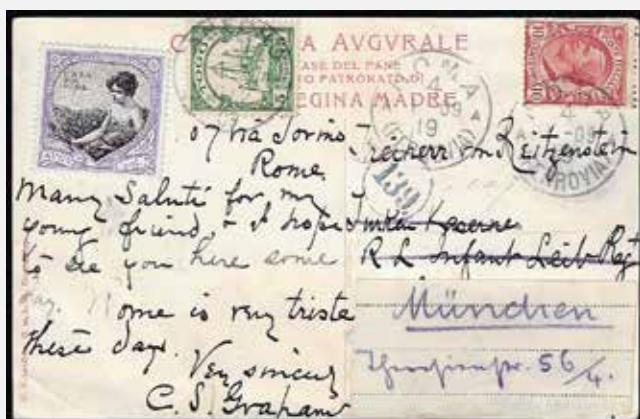 AVGVRALE
CASE DEL PANE
PATRONATO DI
REGINA MADRE
TOGO
ROMA
4
09
19
FERROVIA
139
57 via Torino
Rome
Many Saluti for my
young friend, & I hope
to see you here some
day. Rome is very triste
these days.
Very sincerely
C. S. Graham
Freiherr von Reitzenstein
Kaserne
R L Infant Leib Reg
München
56/4.